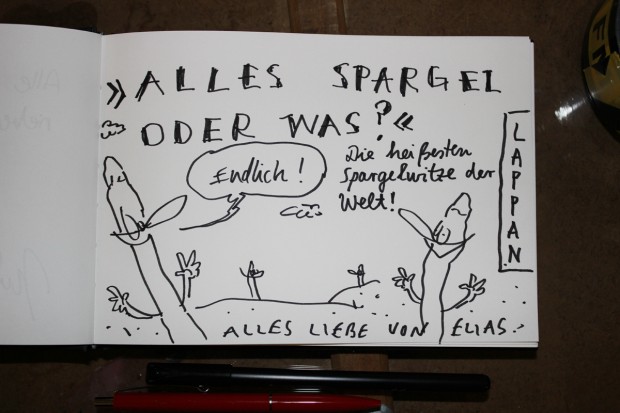 »ALLES SPARGEL
ODER WAS?«
Endlich!
Die heißesten
Spargelwitze der
Welt!
LAPPAN
ALLES LIEBE VON ELIAS